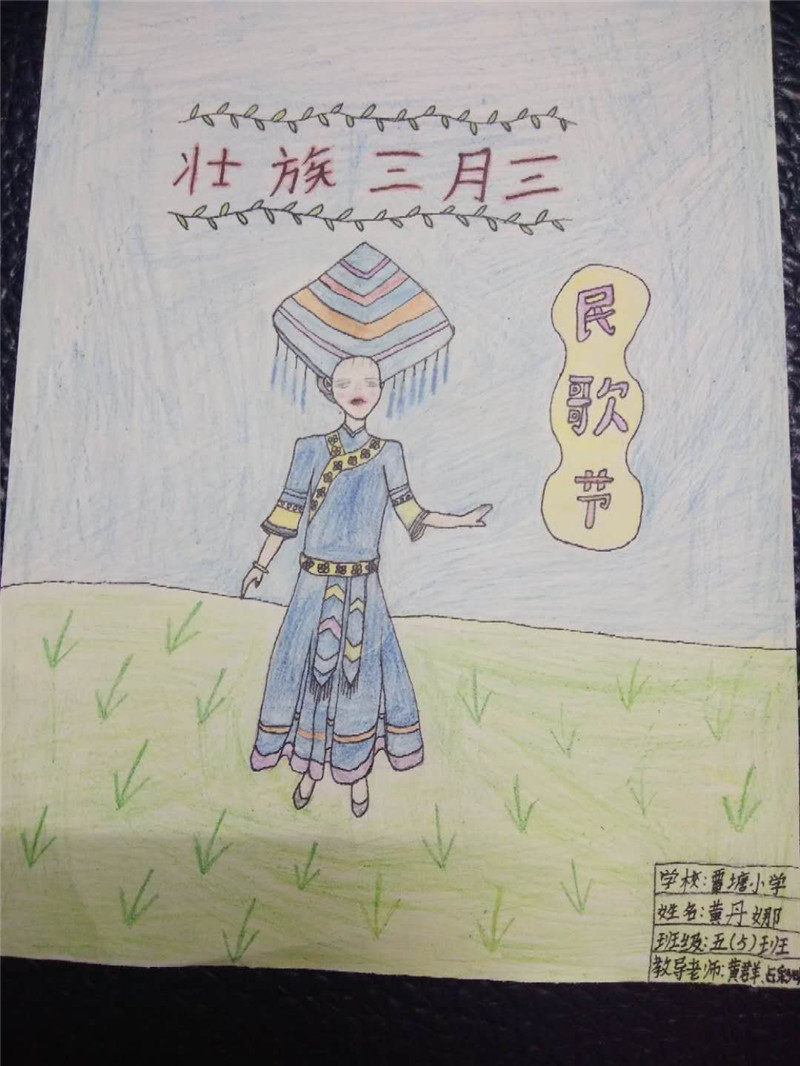 壮族三月三
民歌节
学校:覃塘小学
姓名:黄丹娜
班级:五(5)班
教导老师:黄群、占彩